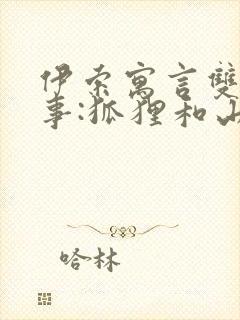 伊索寓言雙
事:狐狸和山
哈林